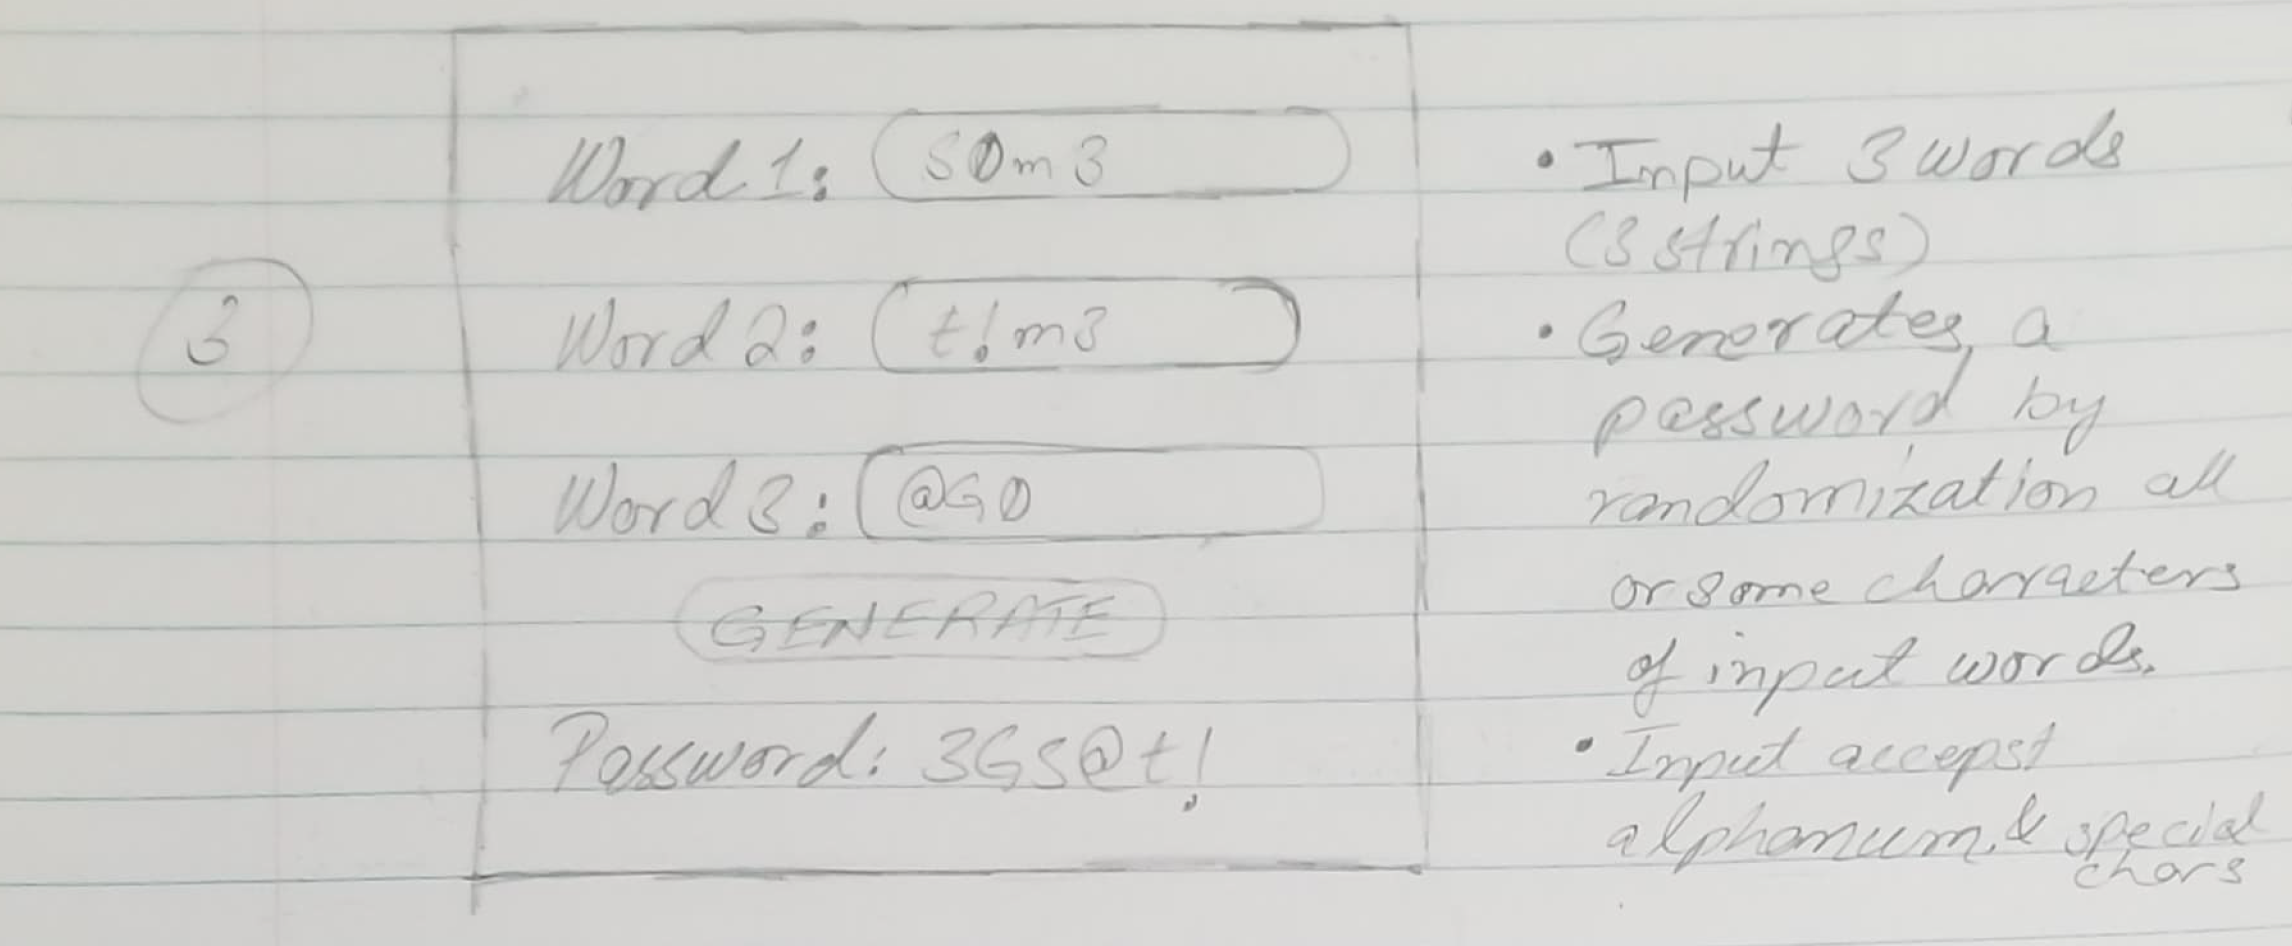 3
Word 1: S0m3
Word 2: t!m3
Word 3: @G0
GENERATE
Password: 3GS@t!
• Input 3 words
(3 strings)
• Generates a
password by
randomization all
or some characters
of input words.
• Input accepst
alphanum. & special
chars